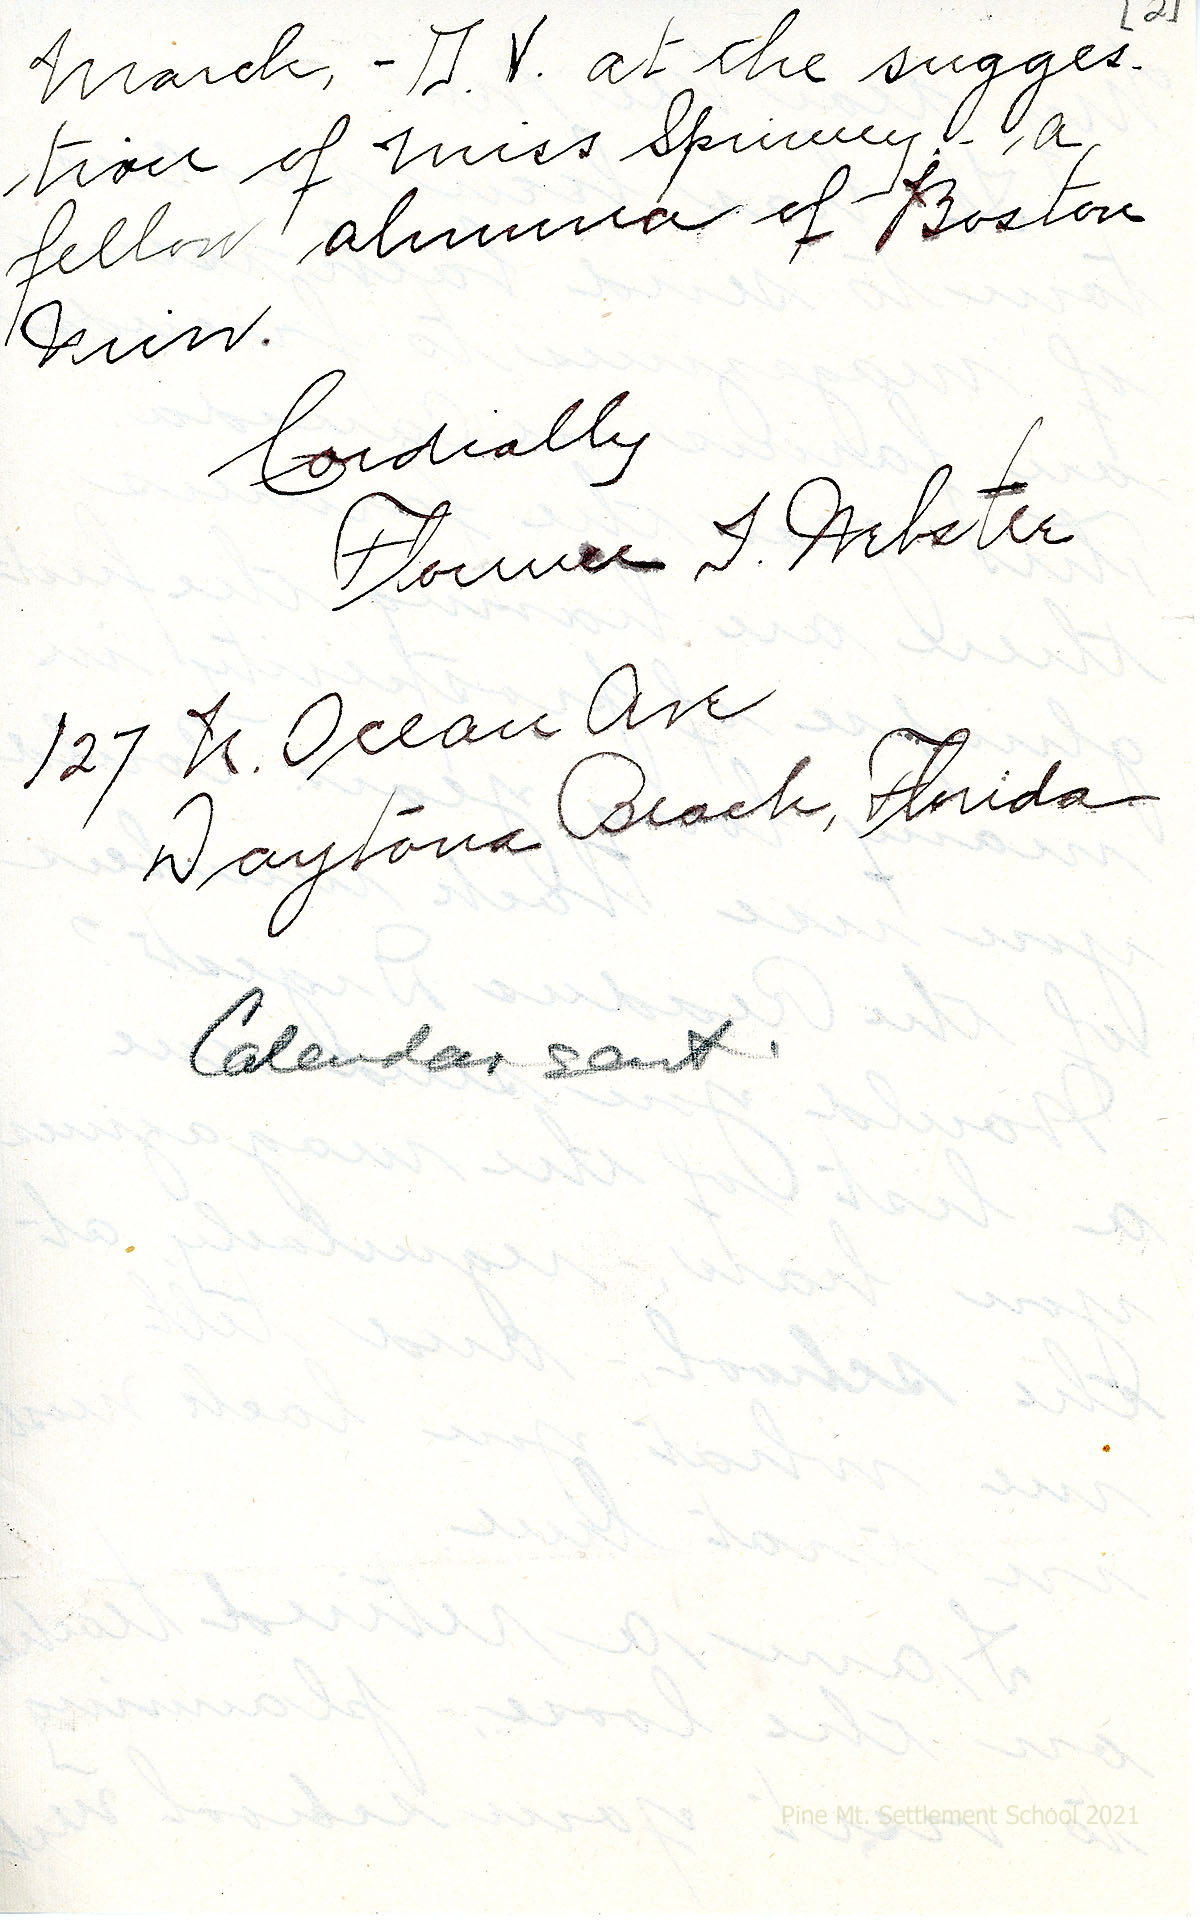 [2]
March, - D. V. at the sugges-
tion of Miss Spinney - a
fellow alumna of Boston
Univ.
Cordially
Florence F. Webster
127 N. Ocean Ave
Daytona Beach, Florida
Calendar sent.
Pine Mt. Settlement School 2021